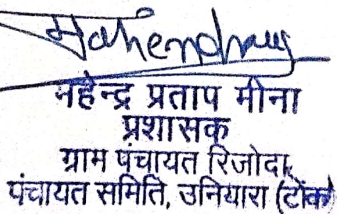 Mahendra
महेन्द्र प्रताप मीना
प्रशासक
ग्राम पंचायत रिजोदा,
पंचायत समिति, उनियारा (टोंक)